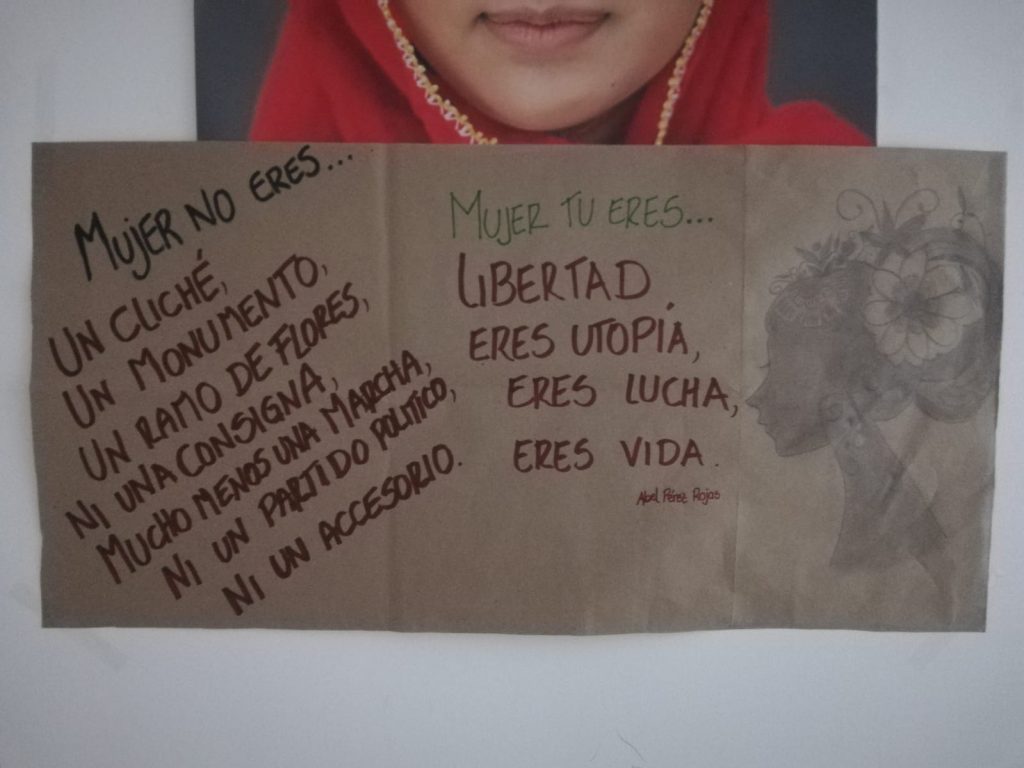 MUJER NO ERES...
UN CLICHÉ,
UN MONUMENTO,
UN RAMO DE FLORES,
NI UNA CONSIGNA,
MUCHO MENOS UNA MARCHA,
NI UN PARTIDO POLITICO,
NI UN ACCESORIO.
MUJER TU ERES...
LIBERTAD,
ERES UTOPÍA,
ERES LUCHA,
ERES VIDA.
Abel Pérez Rojas